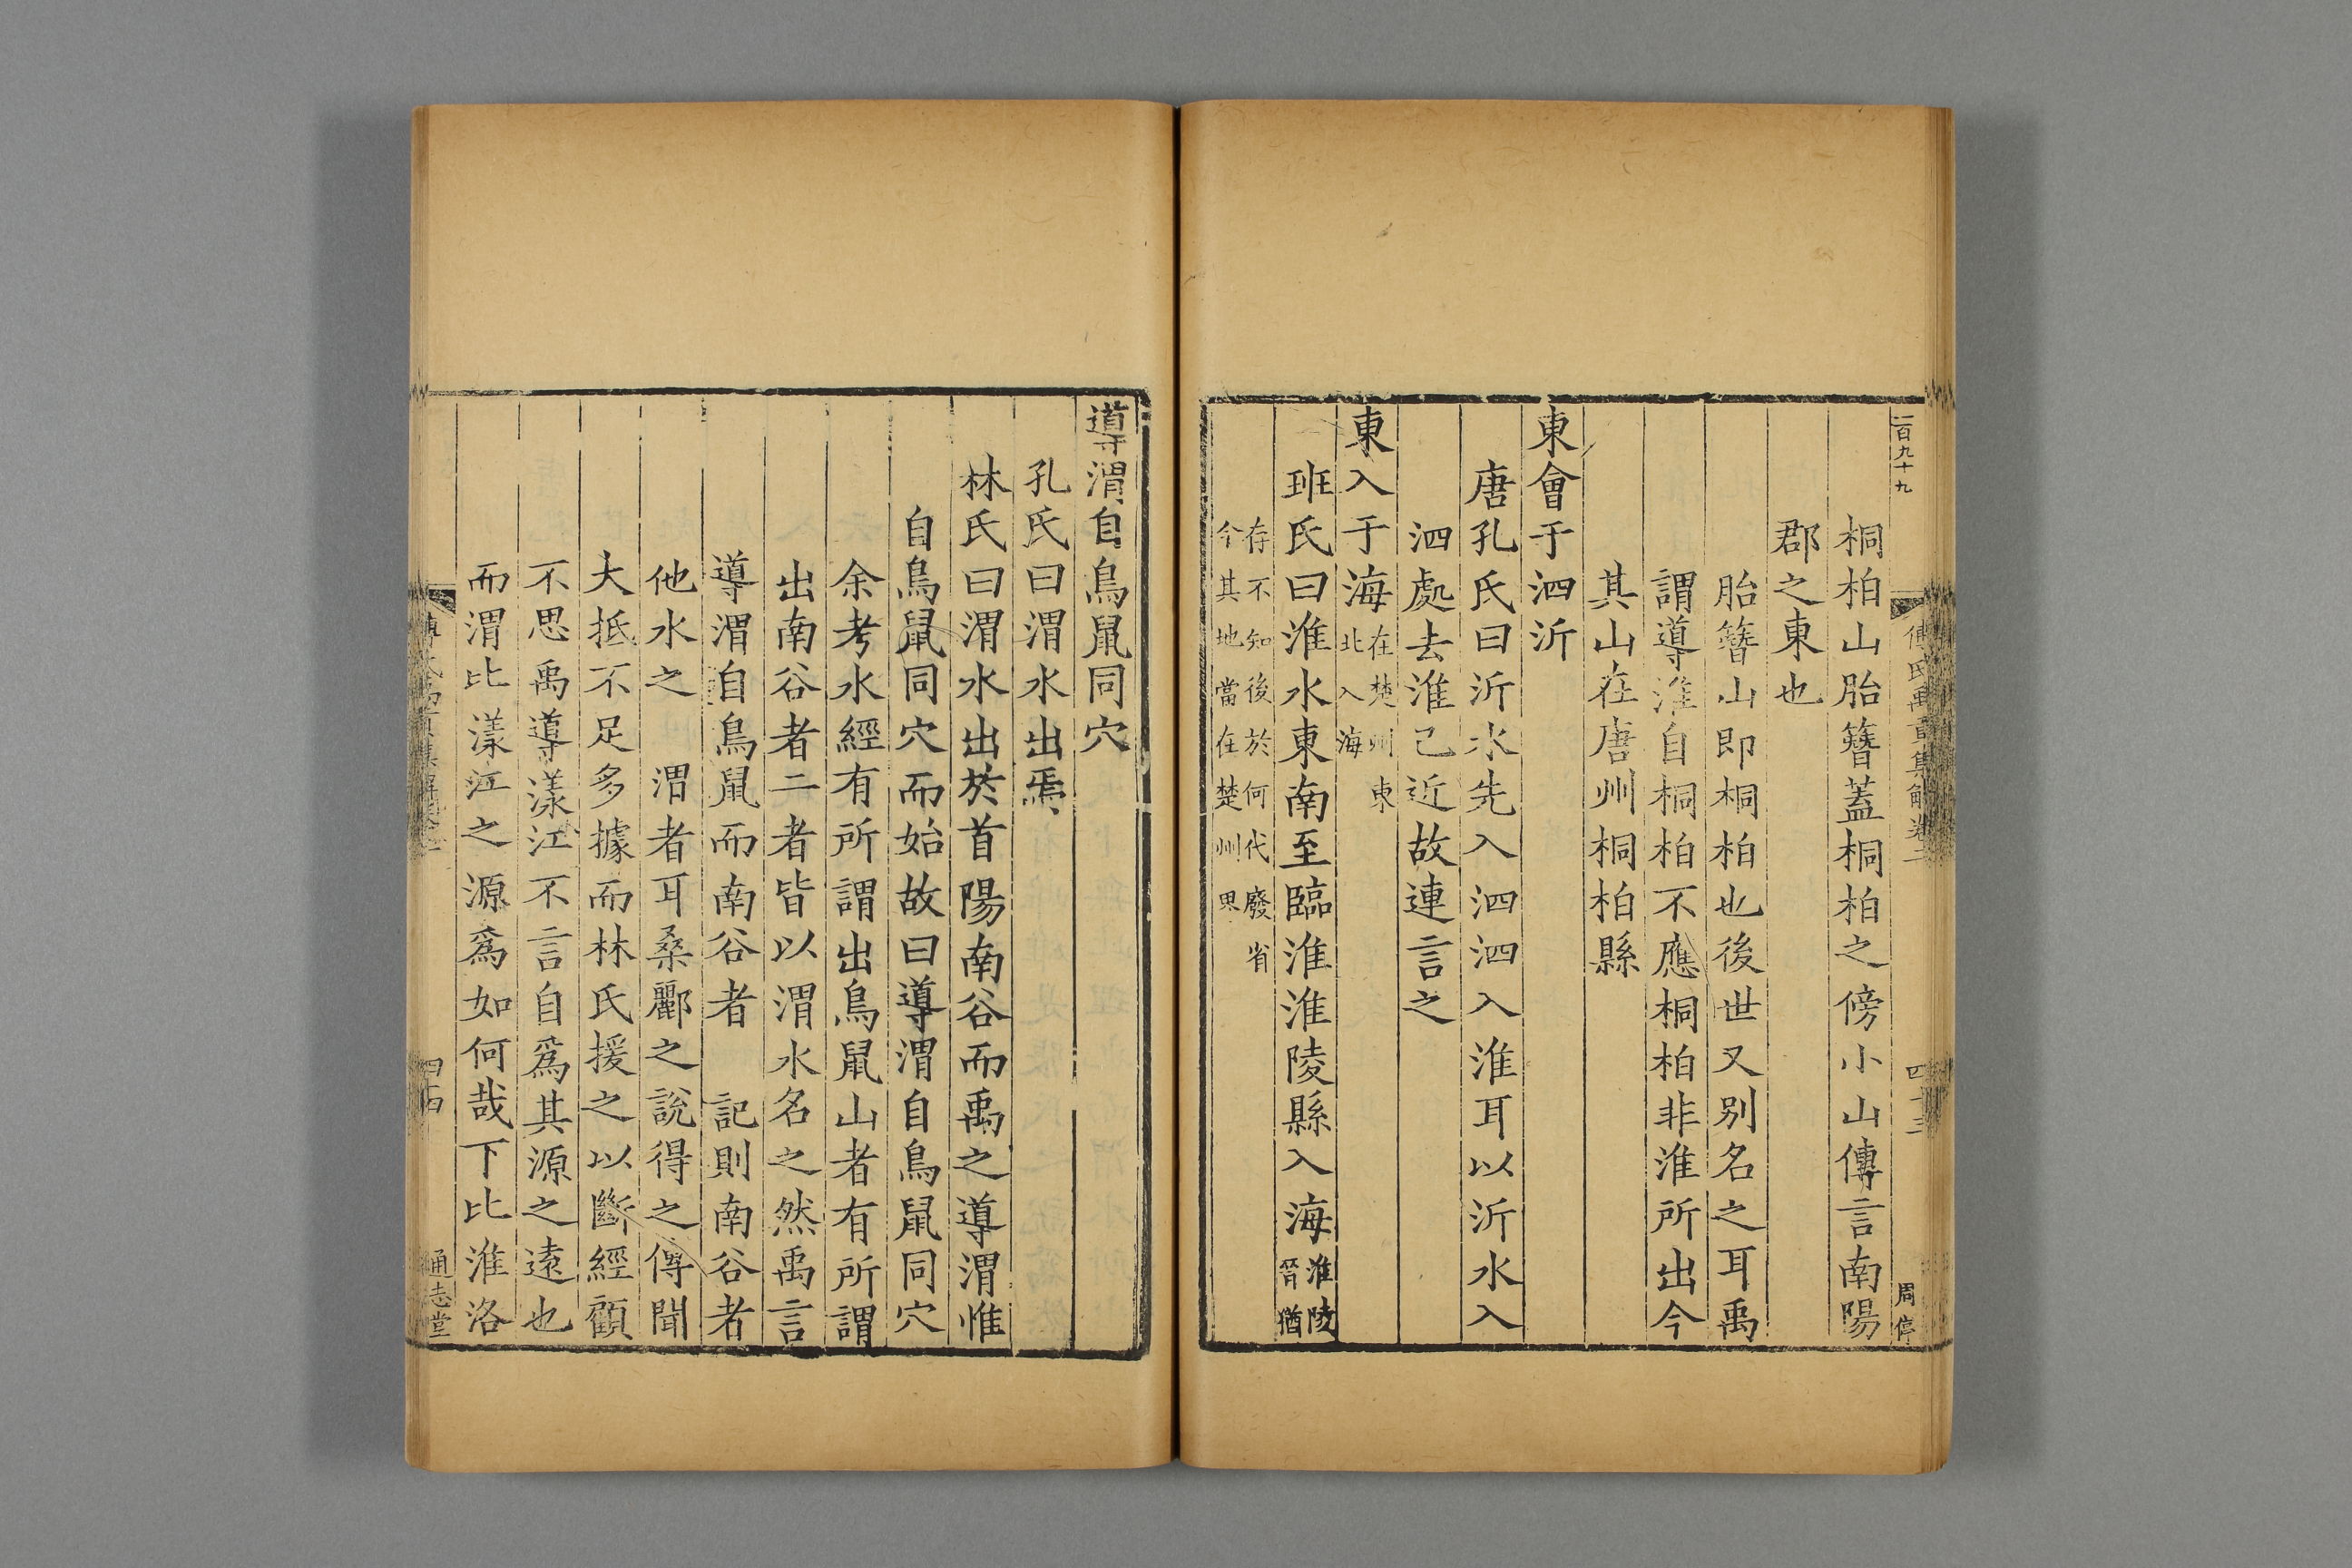 二百九十九
周停
桐柏山胎簪蓋桐柏之傍小山傳言南陽
郡之東也
胎簪山即桐柏也後世又别名之耳禹
謂導淮自桐柏不應桐柏非淮所出今
其山在唐州桐柏縣
東會于泗沂
唐孔氏曰沂水先入泗泗入淮耳以沂水入
泗處去淮已近故連言之
東入于海在楚州東
北入海
班氏曰淮水東南至臨淮淮陵縣入海淮陵
晉猶
存不知後於何代廢省
今其地當在楚州界
導渭自鳥鼠同穴
孔氏曰渭水出焉
林氏曰渭水出於首陽南谷而禹之導渭惟
自鳥鼠同穴而始故曰導渭自鳥鼠同穴
余考水經有所謂出鳥鼠山者有所謂
出南谷者二者皆以渭水名之然禹言
導渭自鳥鼠而南谷者 記則南谷者
他水之 渭者耳桑酈之說得之傳聞
大抵不足多據而林氏援之以斷經顧
不思禹導漾江不言自爲其源之遠也
而渭比漾江之源爲如何哉下比淮洛
通志堂